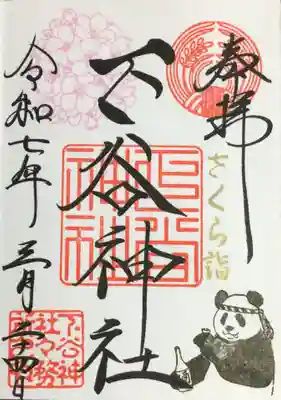 奉拝
さくら詣
下谷神社
令和七年 三月二十四日
下谷神
社々務